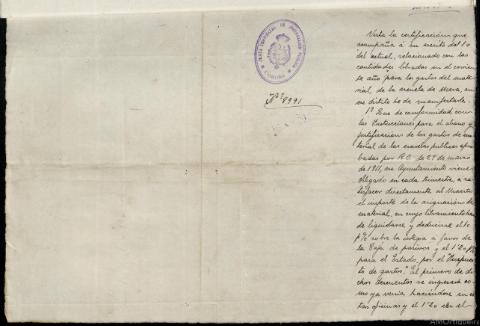 Nº 8991
Vista la certificación que
acompaña á su escrito del 10
del actual, relacionado con las
cantidades libradas en el corrien
te año para los gastos del mate
rial de la escuela de Mera, en
me debito de manifestarle
1º Que de conformidad con
las Instrucciones para el abono y
justificacion de los gastos de ma
terial de las escuelas publicas apro
badas por R.O. de 29 de marzo
de 1911, ese Ayuntamiento viene
obligado en cada trimestre, a sa
tisfacer directamente al Maestro
el importe de la asignación de
material, en cuyo libramiento ha
de liquidarse y deducirse el 10
p% sobre la integra a favor de
la Caja de pasivos y el 1'20 p%
para el Estado, por el Impues
to de gastos. El primero de di
chos descuentos se ingresará co
mo ya venia haciendose en es
tas oficinas y el 1'20 en el
AMOrtigueira